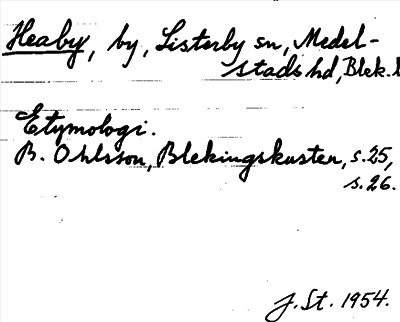 Heaby, by, Listerby sn, Medel-
stads hd, Blek. l
Etymologi.
B. Ohlsson, Blekingskusten, s.25,
s.26.
J. St. 1954.